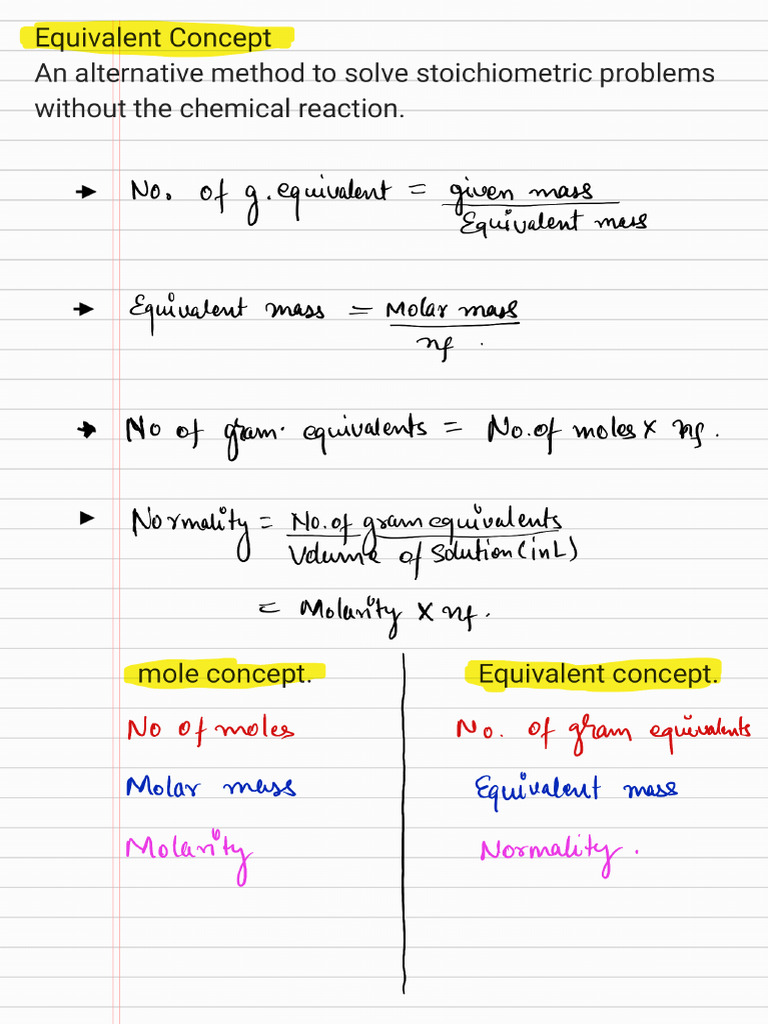 Equivalent Concept
An alternative method to solve stoichiometric problems
without the chemical reaction.
→ No. of g. equivalent = given mass
Equivalent mass
→ Equivalent mass = Molar mass
nf.
→ No of gram. equivalents = No. of moles × nf.
▶ Normality = No. of gram equivalents
Volume of solution (in L)
= Molarity × nf.
mole concept. Equivalent concept.
No of moles No. of gram equivalents
Molar mass Equivalent mass
Molarity Normality.